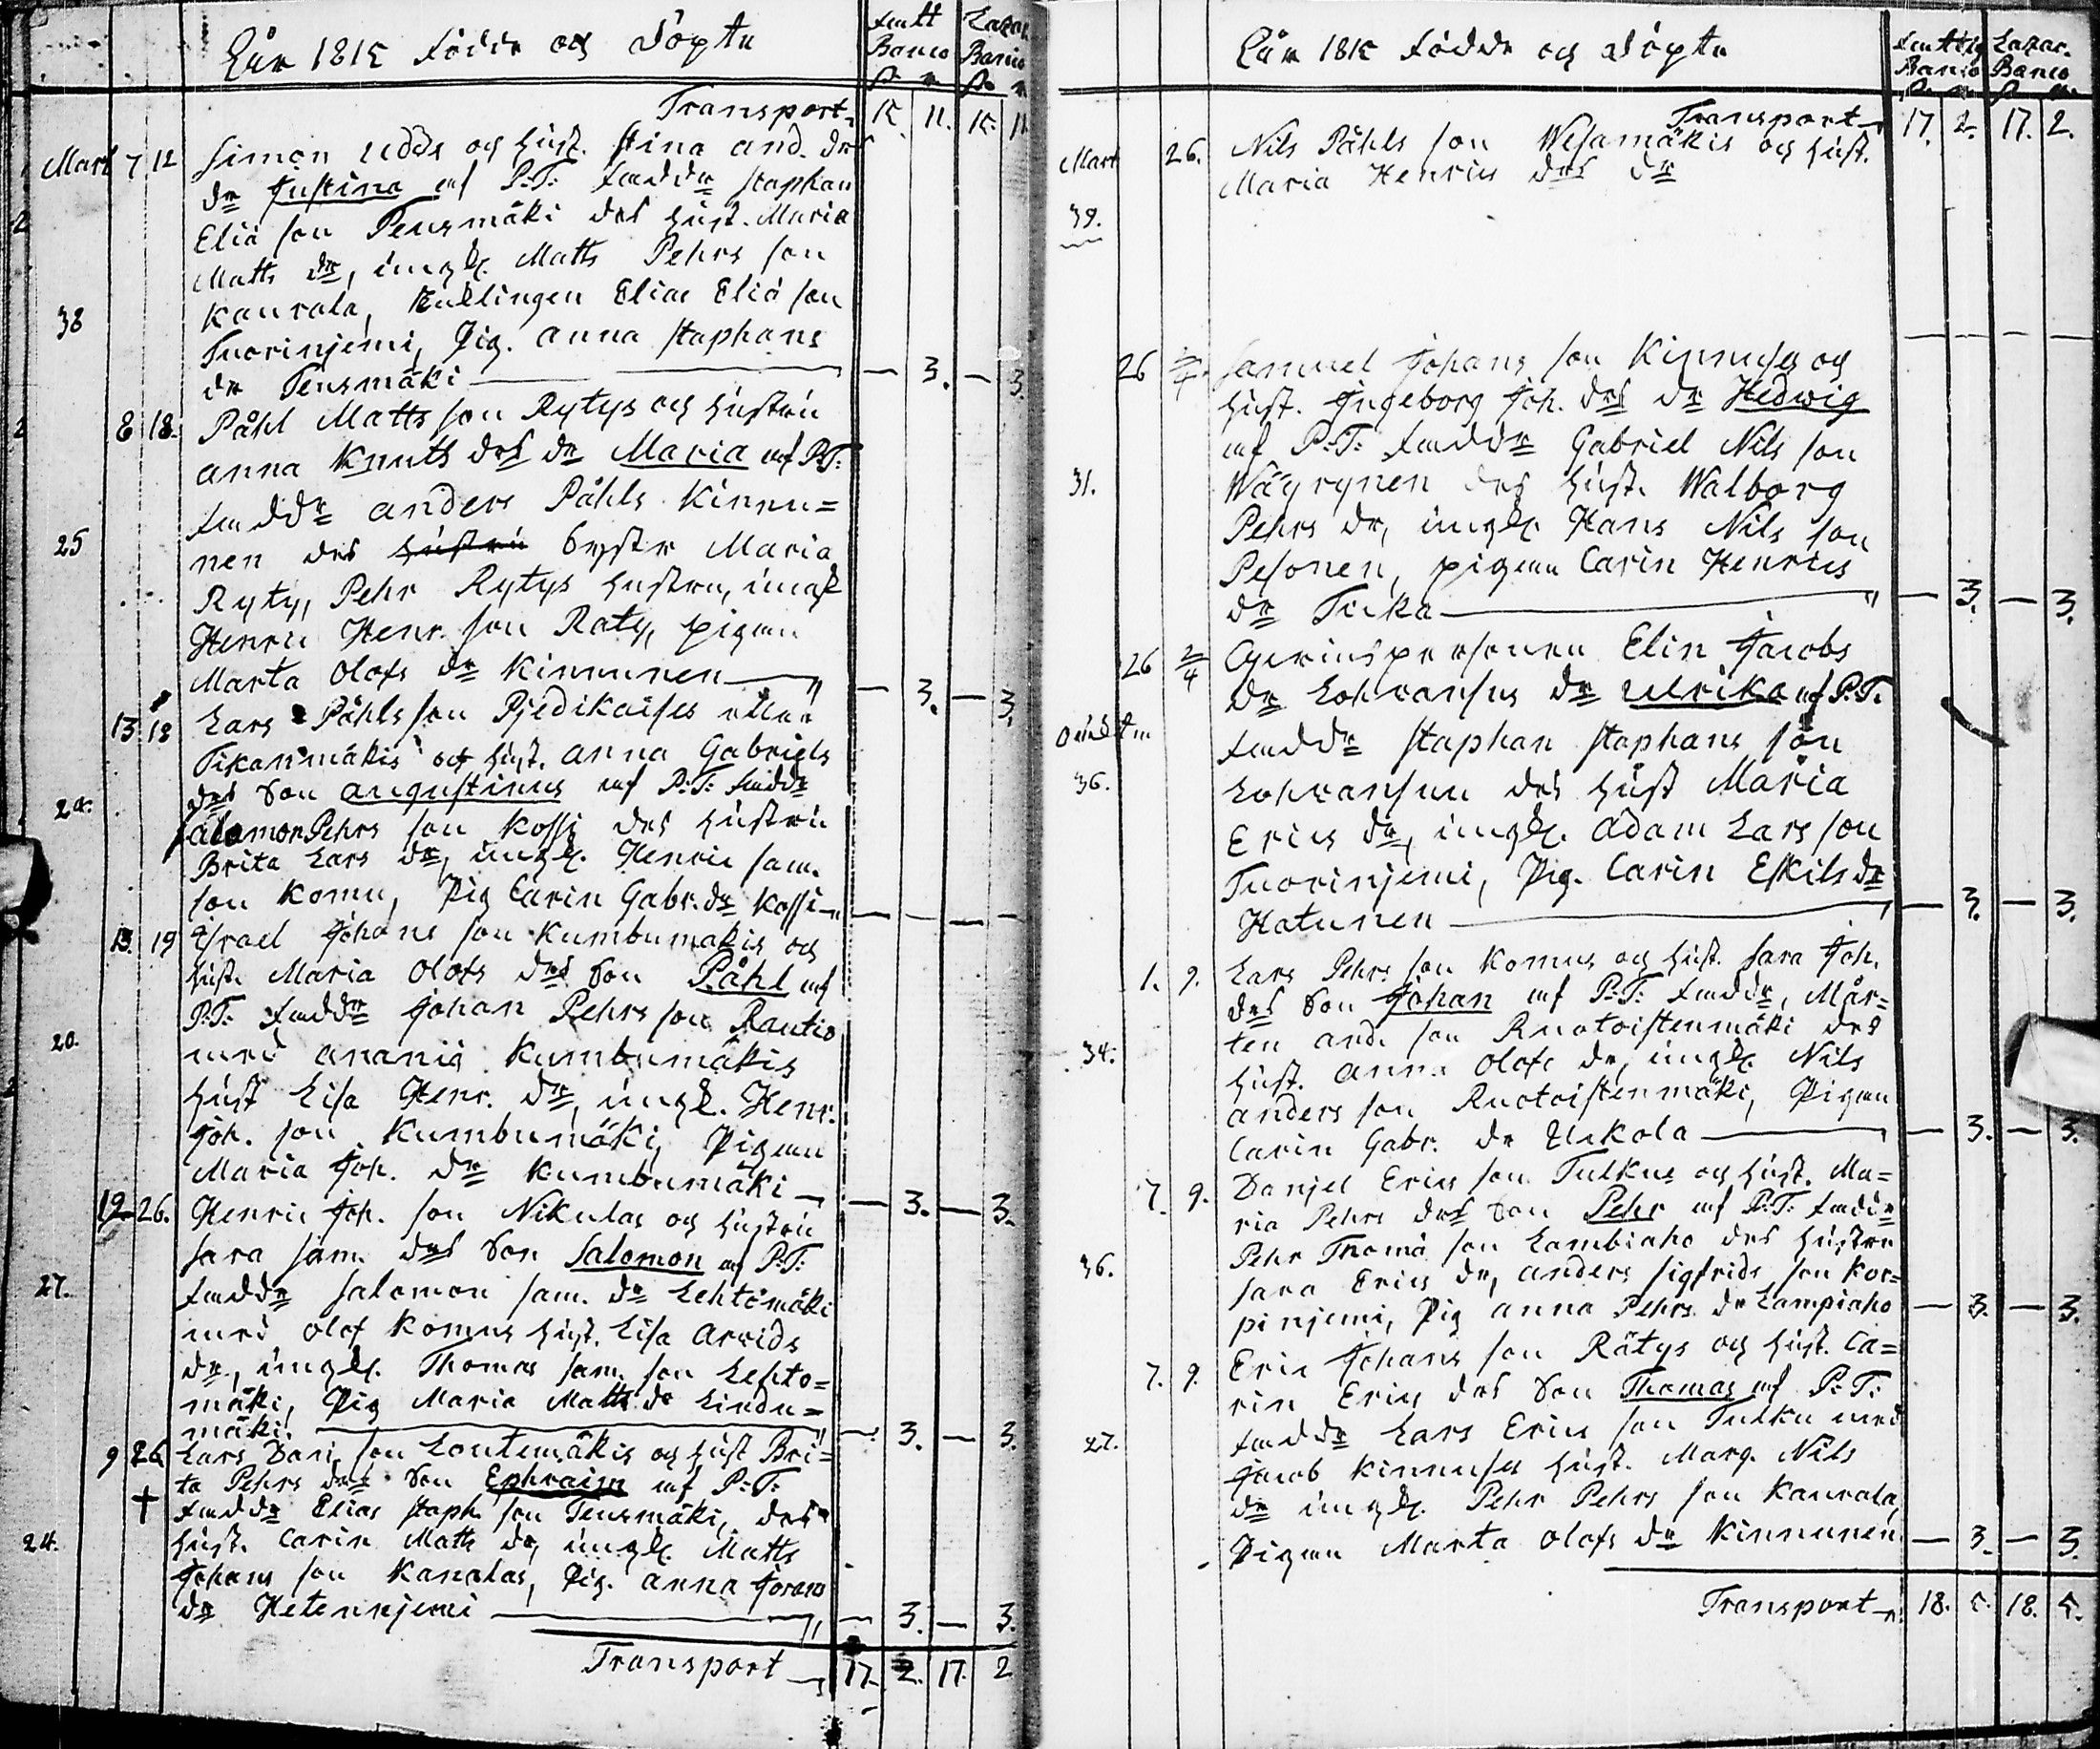 År 1815 födde och döpte
Fatt Banco Lazar. Banco
Transport 15. 11. 15. 11
Mart 7 12 Simon Udds och hust. Stina And. dr
dr Justina af P:T: faddr Staphan
Eliæ son Tensmäki des hust. Maria
Matts dr, ungk. Matts Pehrs son
38 Kaurala, Enklingen Elias Eliæ son
Tuorinjemi, Pig. Anna Staphans
dr Tensmäki — 3. — 3.
8 18. Påhl Matts son Rytys och hustru
Anna Knuts dr dr Maria af P:T:
faddr Anders Påhls Kinnu=
25 nen des hustru Syster Maria
Ryty, Pehr Rytys hustru, ungk
Henric Henr. son Raty, pigan
Marta Olofs dr Kinnunen — 3. — 3.
13 18 Lars Påhls son Pjedikaises eller
Tikanmäkis och hust. Anna Gabriels
dr Son Augustinus af P:T: faddr
24. Salomon Pehrs son Kossi des hustru
Brita Lars dr, ungk. Henric Sam.
son Komu, Pig Carin Gabr. dr Kossi — — — —
13. 19 Israel Johans son Kumbumäkis och
hust. Maria Olofs dr Son Påhl af
P:T: faddr Johan Pehrs son Rautio
20. med Ananiæ Kumbumäkis
hust Lisa Henr. dr, ungk. Henr.
Joh. son Kumbumäki, Pigan
Maria Joh. dr Kumbumäki — 3. — 3.
19 26. Henric Joh. son Nikulas och hustru
Sara Sam. dr Son Salomon af P:T:
27. faddr Salomon Sam. dr Lehtomäki
med Olof Komus hust. Lisa Arvids
dr, ungk. Thomas Sam. son Lehto=
mäki, Pig Maria Matts dr Lindu=
mäki. — 3. — 3.
9 26 Lars Dani. son Loutemäkis och hust Bri=
ta Pehrs dr Son Ephraim af P:T:
† faddr Elias Staph. son Tensmäki, des
24. hust. Carin Matts dr, ungk. Matts
Johans son Kanalas, Pig. Anna Jorans
dr Hetennjemi — 3. — 3.
Transport 17. 2. 17. 2
År 1815 födde och döpte
Fattig Banco Lazar. Banco
Transport 17. 2. 17. 2.
Mart 26. Nils Påhls son Wesamäkis och hust.
Maria Henrics dr dr
39.
— — — —
26 2/4. Samuel Johans son Kinnuses och
hust. Ingeborg Joh. dr dr Hedwig
af P:T: faddr Gabriel Nils son
31. Wäyrynen des hust. Walborg
Pehrs dr, ungk. Hans Nils son
Pesonen, pigan Carin Henrics
dr Ticka — 3. — 3.
26 2/4 Qvinspersonen Elin Jacobs
dr Lohvansus dr Ulrika af P:T.
faddr Staphan Staphans son
36. Lohvansuu des hust Maria
Erics dr, ungk. Adam Lars son
Tuorinjemi, Pig. Carin Eskils dr
Hatunen — 3. — 3.
1. 9. Lars Pehrs son Komus och hust. Sara Joh.
dr Son Johan af P:T: faddr, Mår=
ten And. son Ruotoistenmäki des
34. hust. Anna Olofs dr, ungk. Nils
Anders son Ruotoistenmäki, Pigan
Carin Gabr. dr Uckola — 3. — 3.
7. 9. Danjel Erics son Tulkus och hust. Ma=
ria Pehrs dr Son Pehr af P:T: faddr
36. Pehr Thomæ son Lambiaho des hustru
Sara Erics dr, Anders Sigfrids son Kor=
pinjemi, Pig Anna Pehrs dr Lampiaho — 3. — 3.
7. 9. Eric Johans son Rätys och hust. Ca=
rin Erics dr Son Thomas af P:T:
faddr Lars Erics son Tulku med
27. Jacob Kinnuses hust. Marg. Nils
dr ungk. Pehr Pehrs son Kaurala,
Pigan Marta Olofs dr Kinnunen — 3. — 3.
Transport 18. 5. 18. 5.